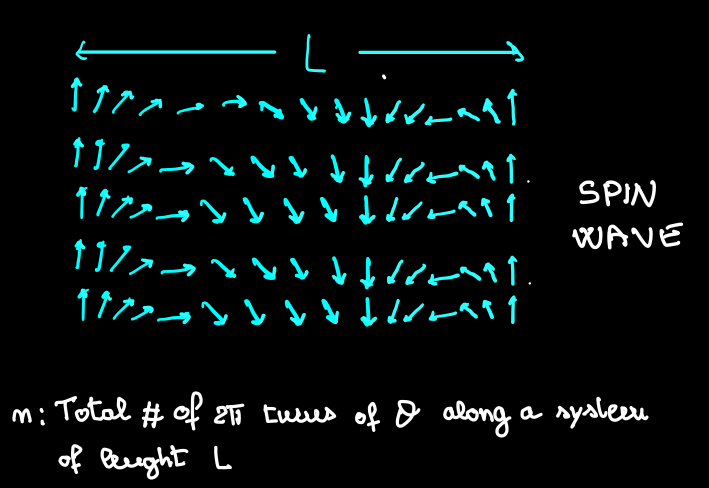 L
SPIN
WAVE
n: Total # of 2π turns of θ along a system
of lenght L